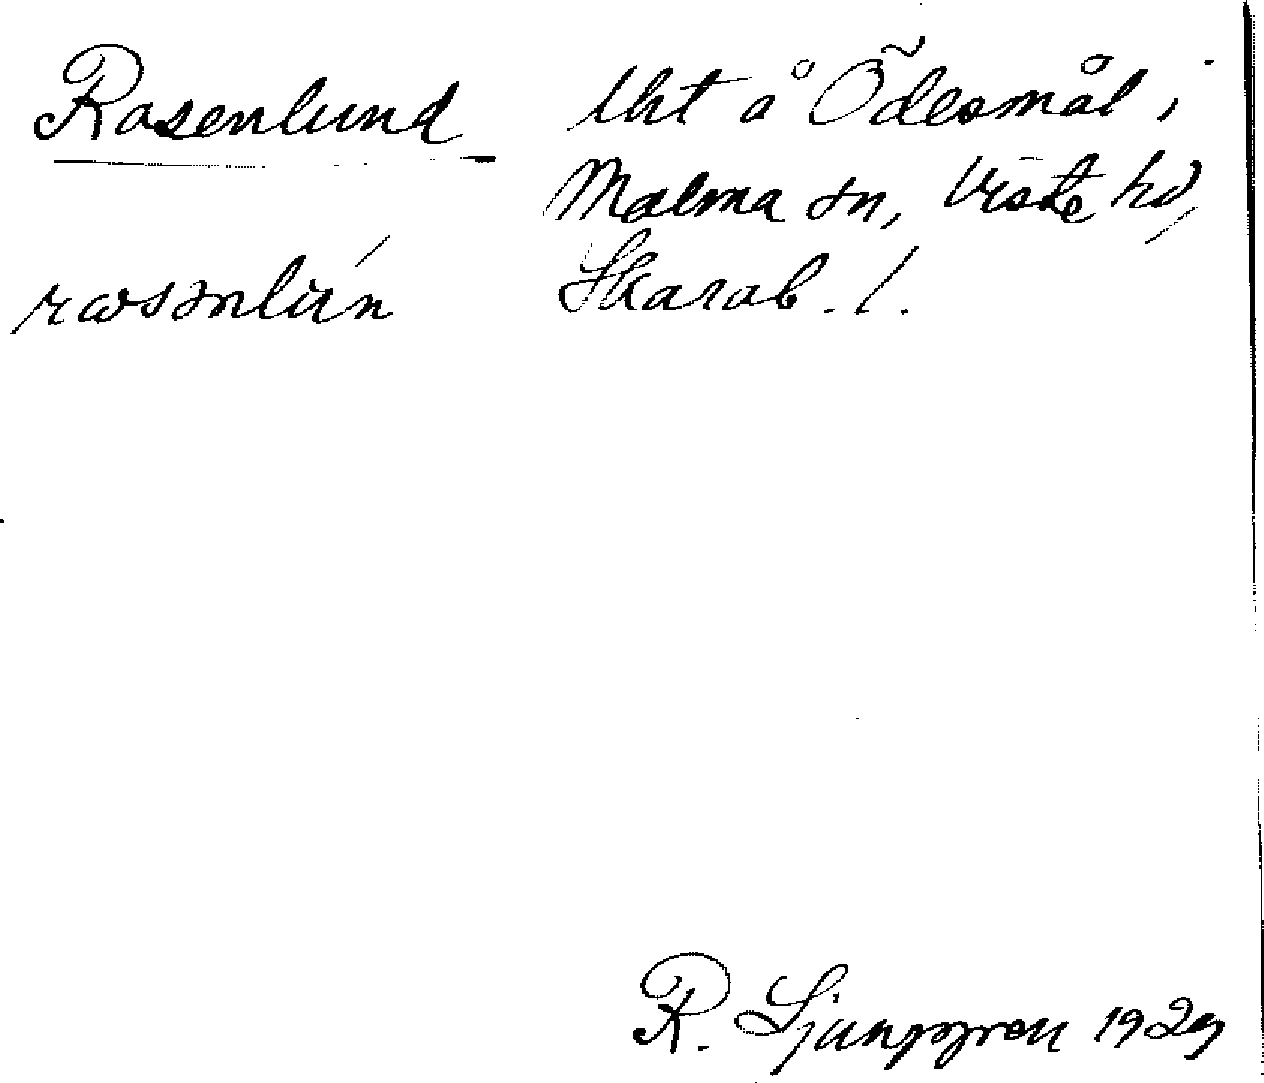 Rosenlund lht å Ödesmål i
Malma sn, Viste hd,
Skarab. l.
R. Ljunggren 1929